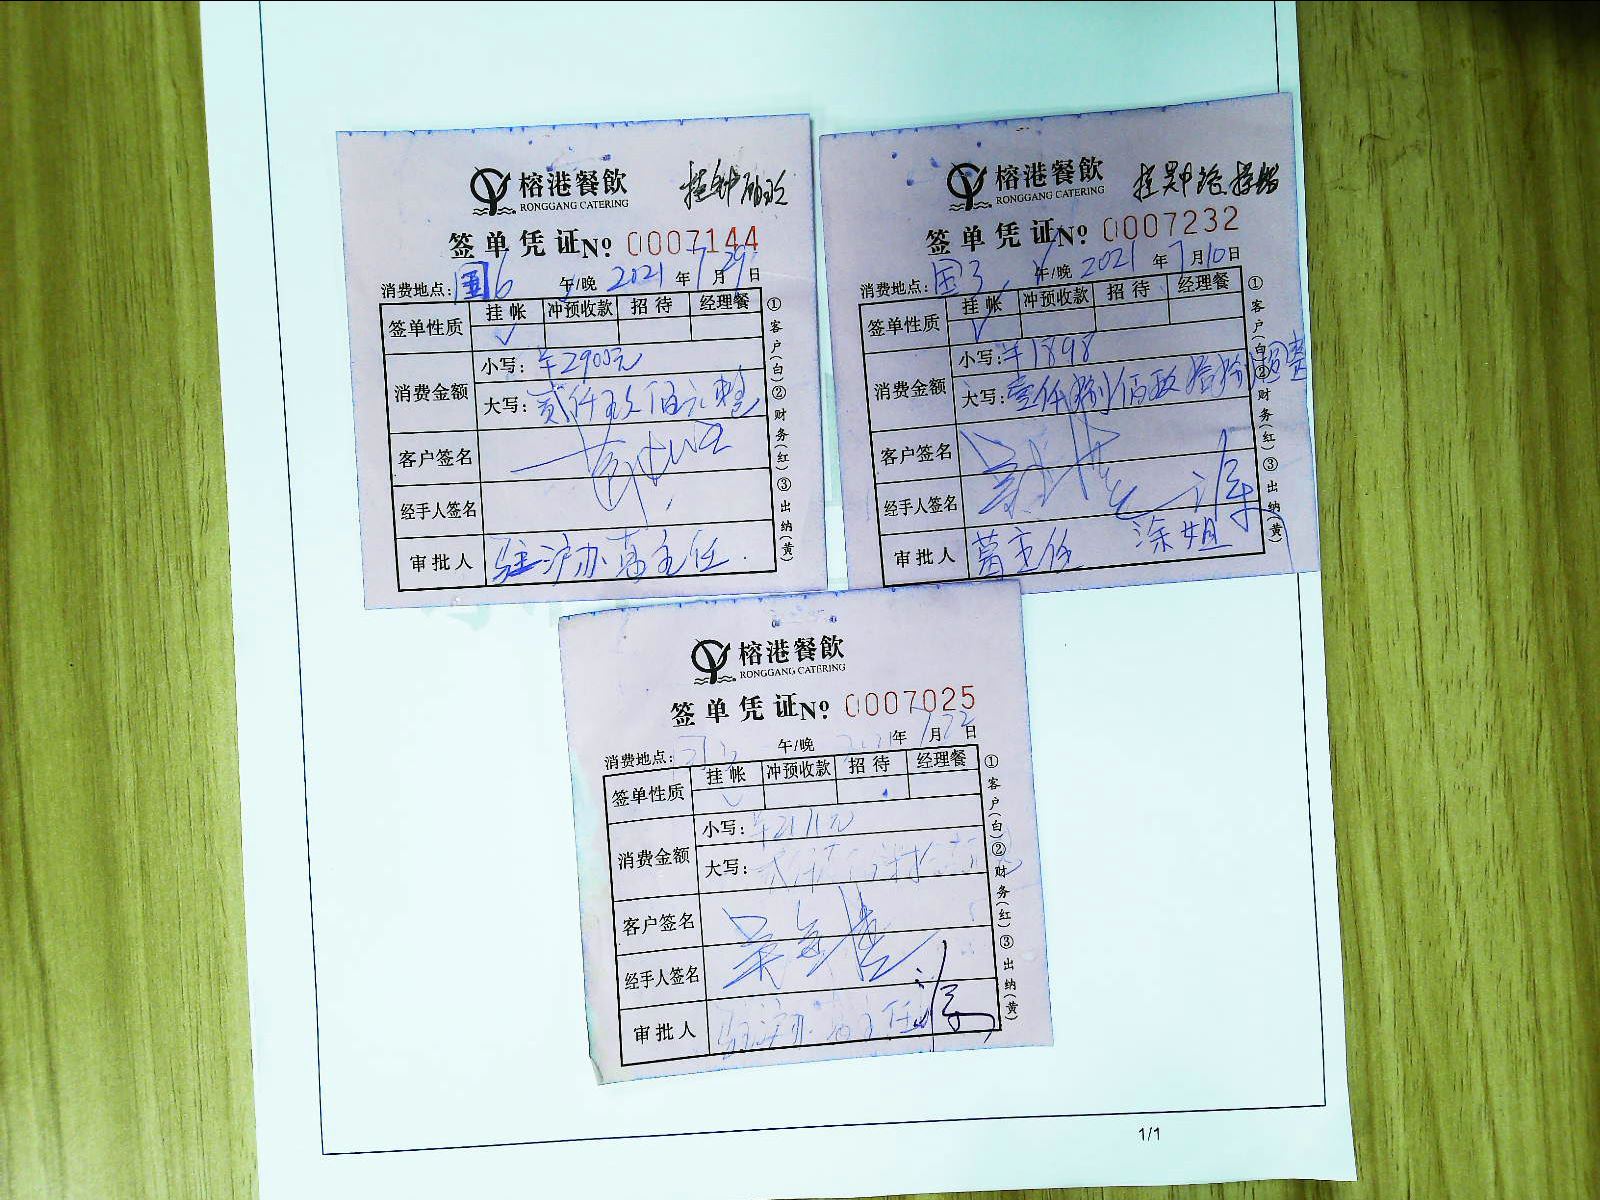 榕港餐飲
RONGGANG CATERING
签单凭证 № 0007144
消费地点: 国6 午/晚 2021年7月29日
签单性质 挂帐 冲预收款 招待 经理餐
✓
消费金额 小写: ¥2900元
大写: 贰仟玖佰元整
客户签名
经手人签名
审批人 驻沪办葛主任
①客户(白)②财务(红)③出纳(黄)
榕港餐飲
RONGGANG CATERING
签单凭证 № 0007232
消费地点: 国3 午/晚 2021年7月10日
签单性质 挂帐 冲预收款 招待 经理餐
✓
消费金额 小写: ¥1898
大写: 壹仟捌佰玖拾捌圆整
客户签名
经手人签名
审批人 葛主任 涂姐
①客户(白)②财务(红)③出纳(黄)
榕港餐飲
RONGGANG CATERING
签单凭证 № 0007025
消费地点: 午/晚 2021年月日
签单性质 挂帐 冲预收款 招待 经理餐
✓
消费金额 小写: ¥2171元
大写:
客户签名
经手人签名
审批人 驻沪办葛主任
①客户(白)②财务(红)③出纳(黄)
1/1